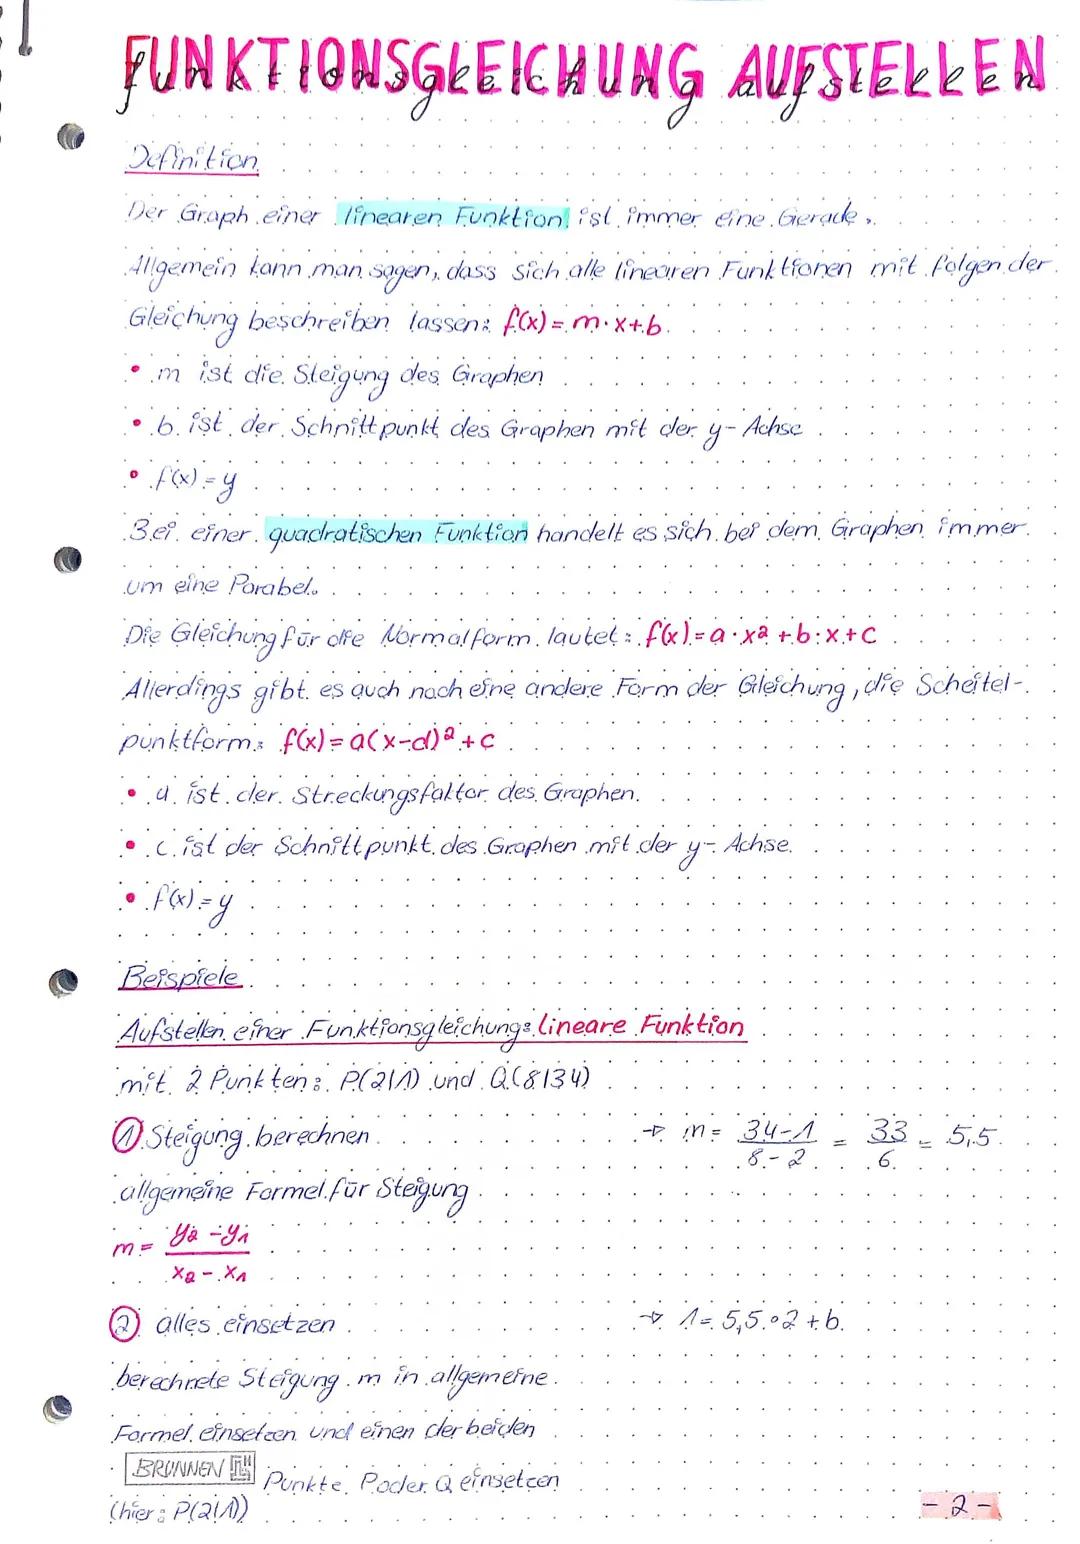 FUNKTIONSGLEICHUNG AUFSTELLEN
funktionsgleichung aufstellen
Definition
Der Graph einer linearen Funktion ist immer eine Gerade.
Allgemein kann man sagen, dass sich alle linearen Funktionen mit folgender
Gleichung beschreiben lassen: f(x) = m·x+b
• m ist die Steigung des Graphen
• b ist der Schnittpunkt des Graphen mit der y-Achse
• f(x) = y
Bei einer quadratischen Funktion handelt es sich bei dem Graphen immer
um eine Parabel.
Die Gleichung für die Normalform lautet: f(x) = a·x² + b·x+c
Allerdings gibt es auch noch eine andere Form der Gleichung, die Scheitel-
punktform: f(x) = a(x-d)² + c
• a ist der Streckungsfaktor des Graphen.
• c ist der Schnittpunkt des Graphen mit der y-Achse.
• f(x) = y
Beispiele
Aufstellen einer Funktionsgleichung: lineare Funktion
mit 2 Punkten: P(2|1) und Q(8|34)
① Steigung berechnen → m = (34-1)/(8-2) = 33/6 = 5,5
allgemeine Formel für Steigung
m = (y₂ - y₁)/(x₂ - x₁)
② alles einsetzen → 1 = 5,5·2 + b
berechnete Steigung m in allgemeine
Formel einsetzen und einen der beiden
BRUNNEN Punkte P oder Q einsetzen
(hier: P(2|1))
- 2 -